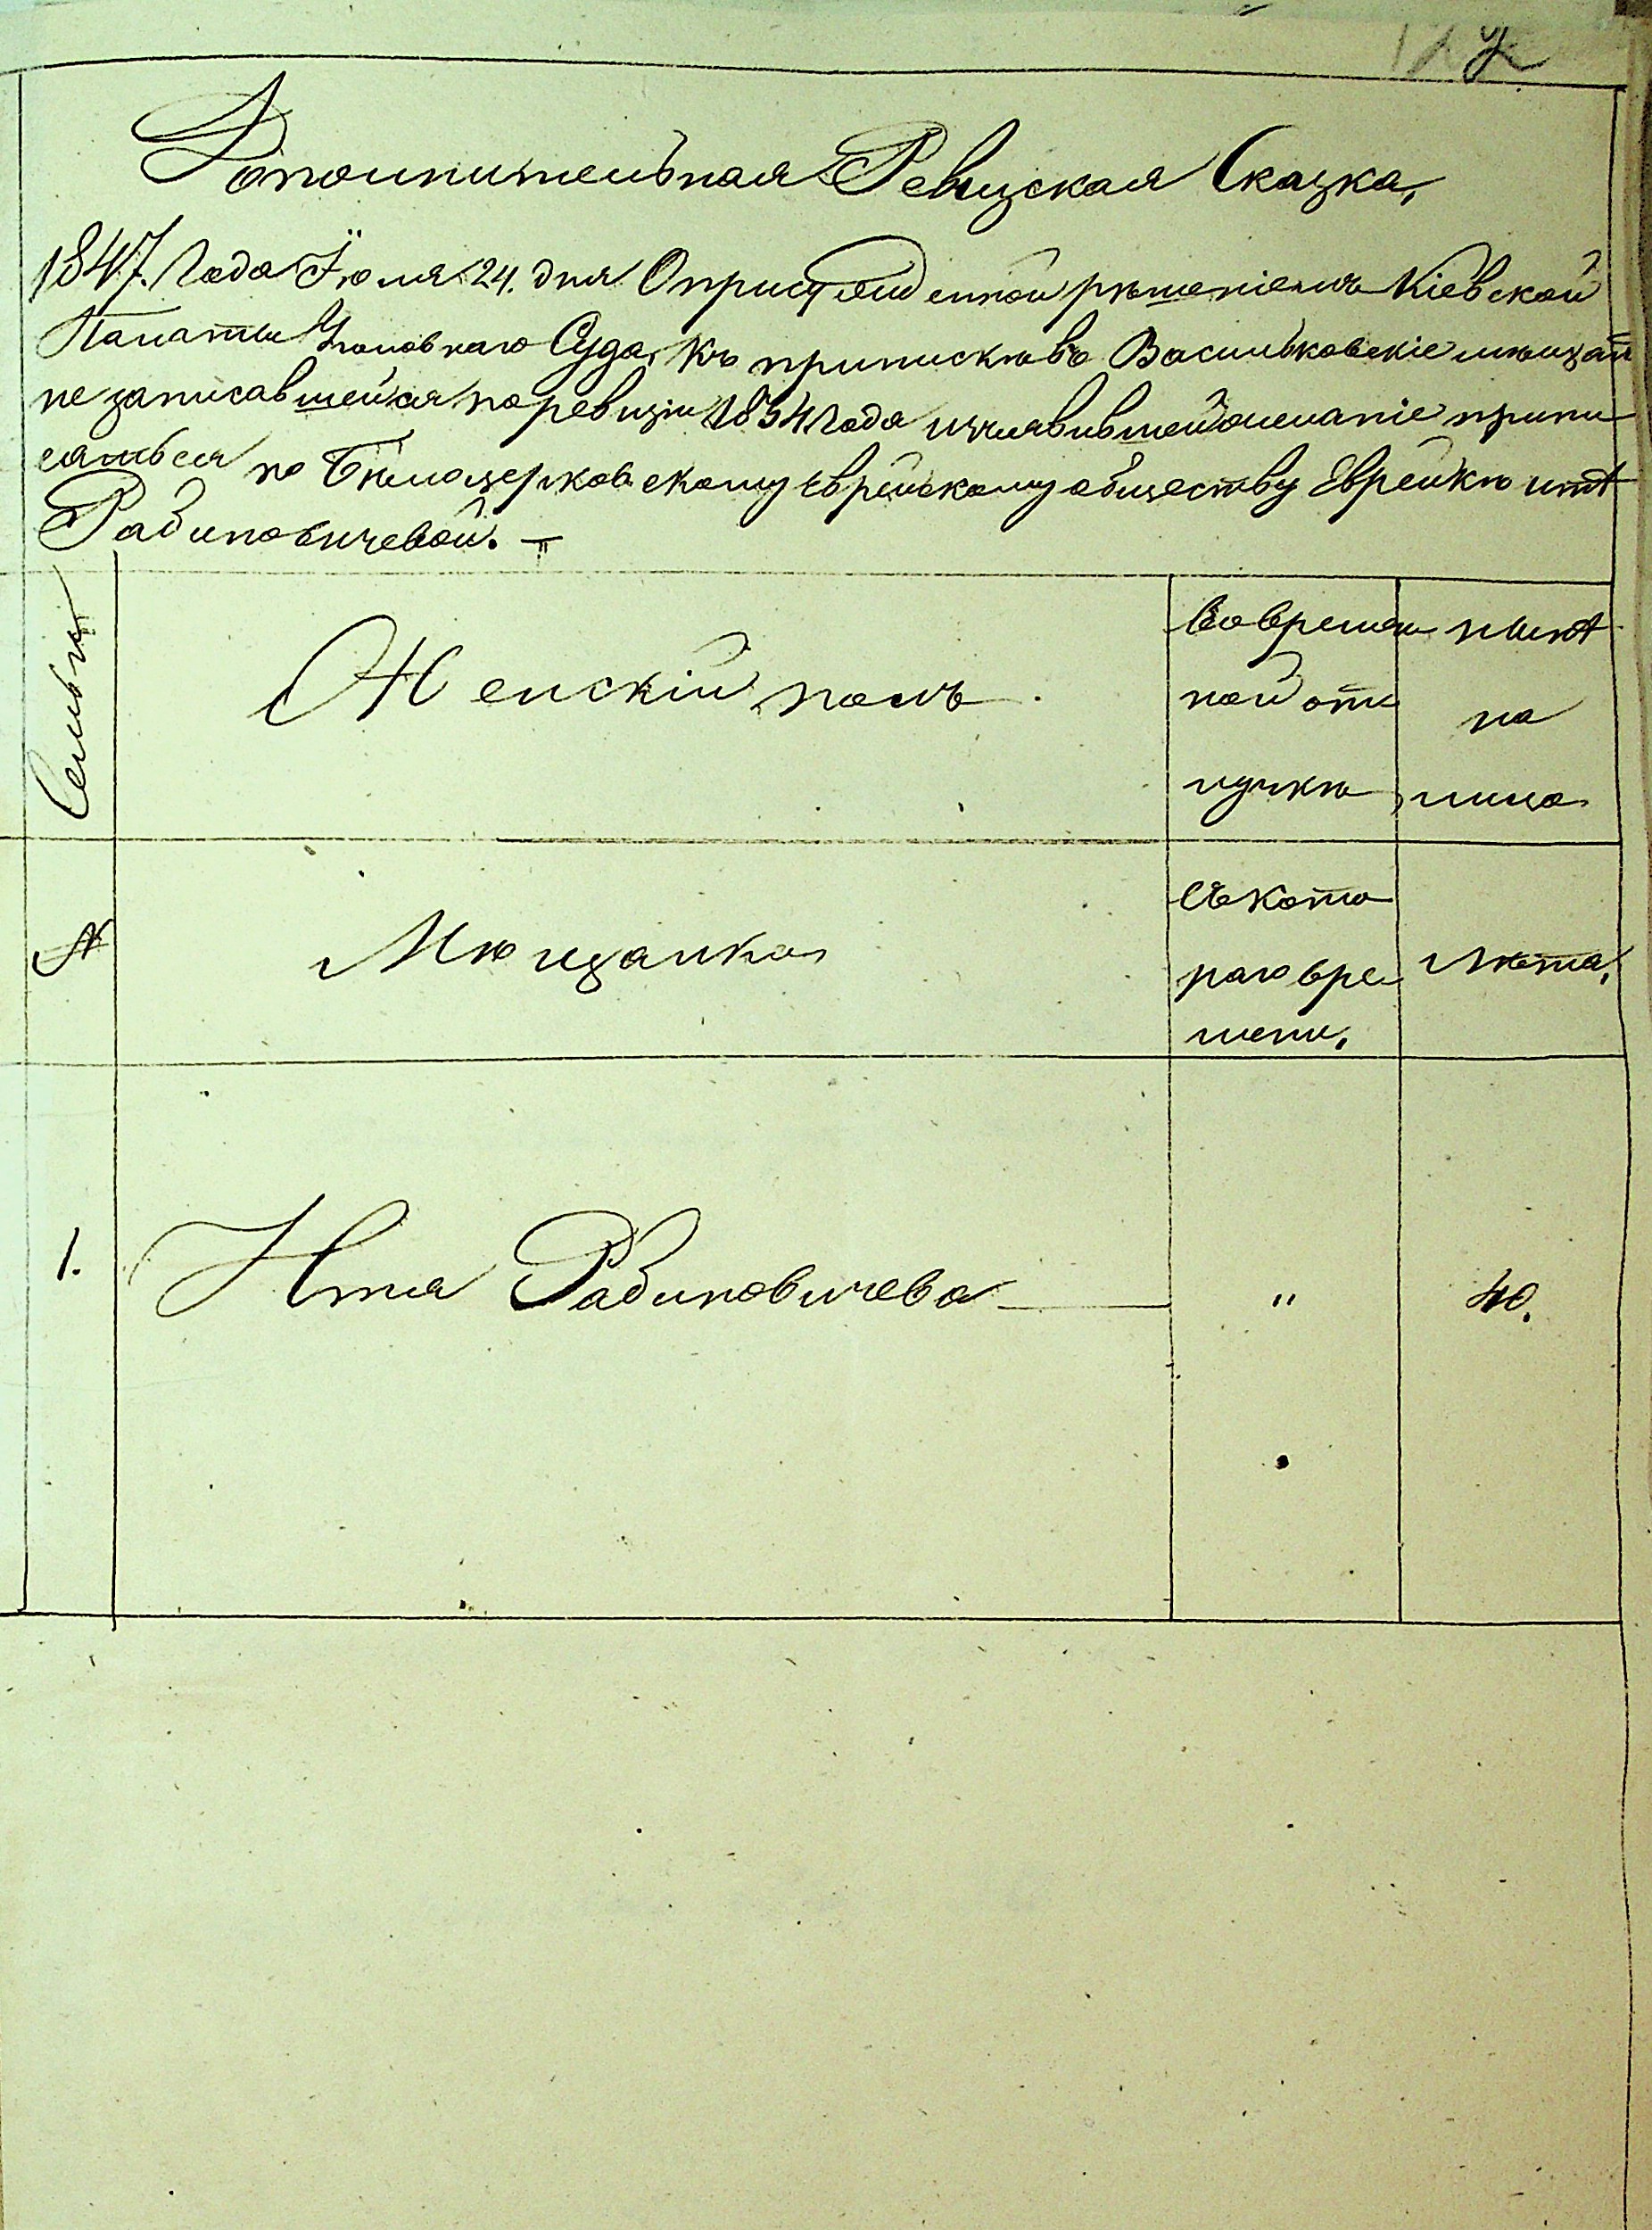 Дополнительная Ревизская Сказка,
1847. Года Іюля 24. дня О присужденной рѣшеніемъ Кіевской
Палаты Уголовнаго Суда, къ припискѣ въ Васильковскіе мѣщане
не записавшейся по ревизіи 1834 Года изъявившей желаніе припи
саться по Бѣлоцерковскому Еврейскому обществу Еврейкѣ
Рабиновичевой.
Семьи
Женскій полъ.
Во времен нынѣ
ной от на
лучкѣ лицо
№
Мѣщанка
Съ кото
раго вре Лѣта,
мени.
1. Рабиновичева " 40.